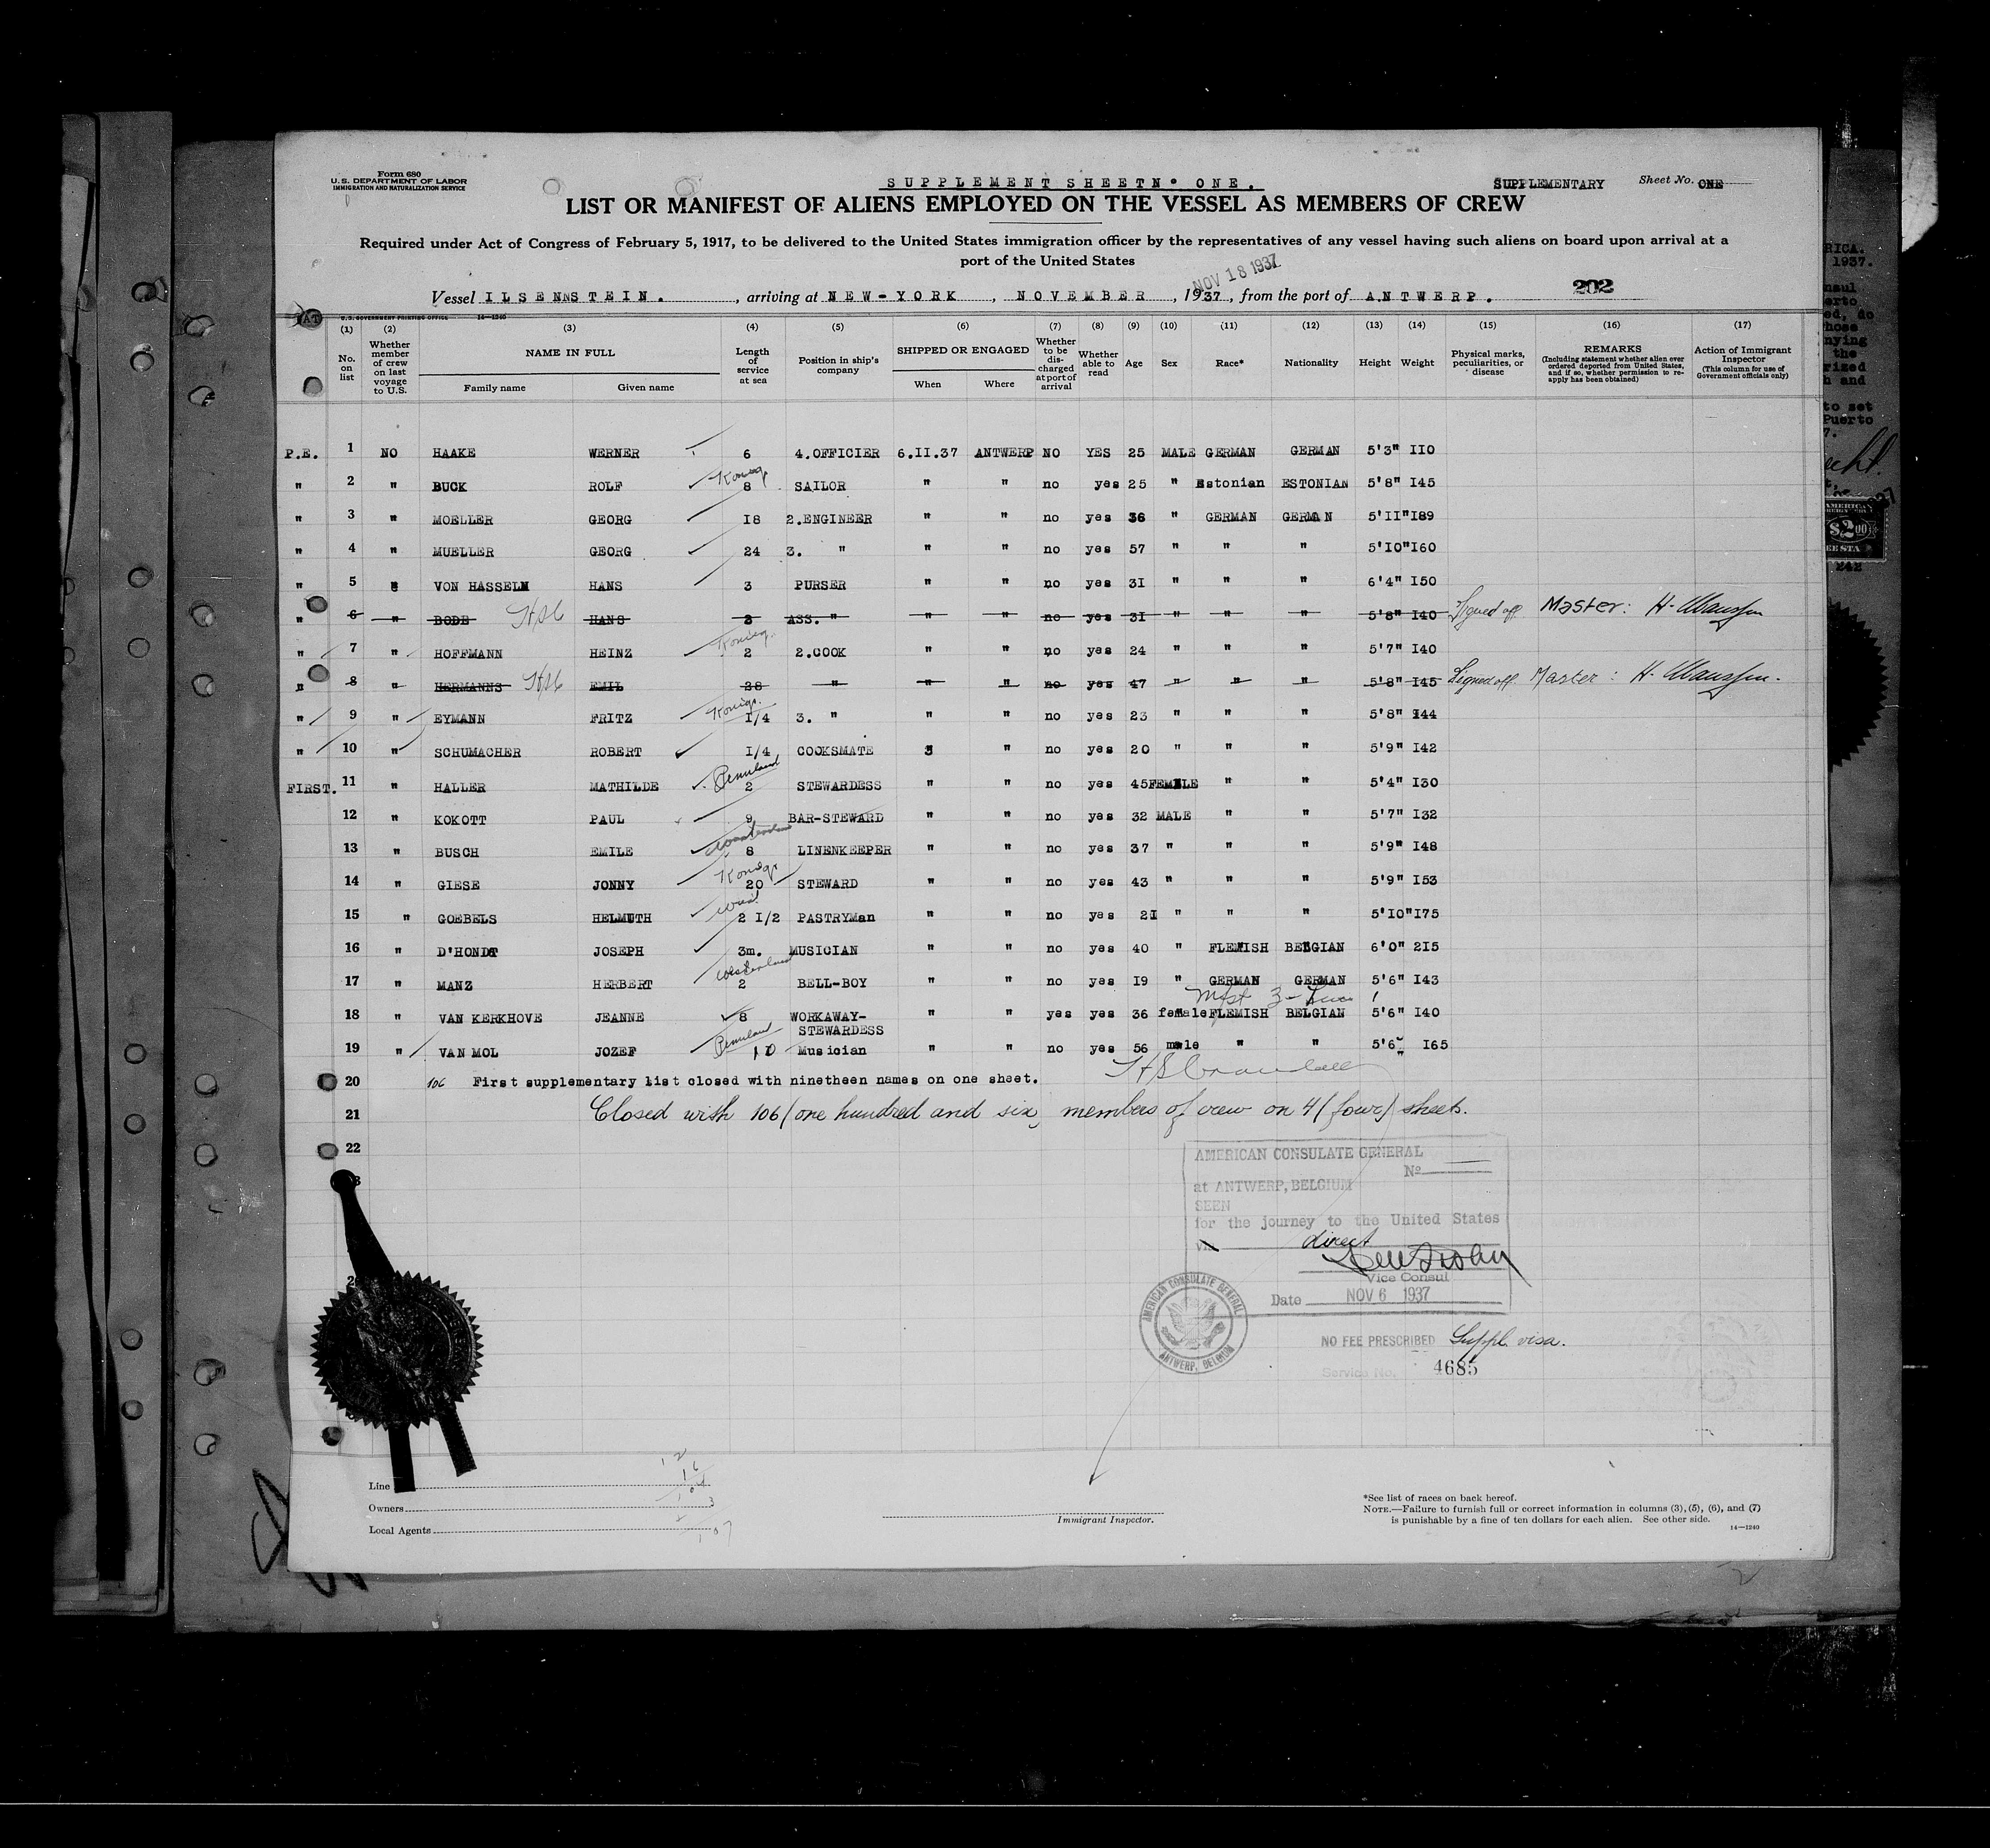 Form 680
U.S. DEPARTMENT OF LABOR
IMMIGRATION AND NATURALIZATION SERVICE
SUPPLEMENT SHEETNº ONE.
SUPPLEMENTARY Sheet No. ONE
LIST OR MANIFEST OF ALIENS EMPLOYED ON THE VESSEL AS MEMBERS OF CREW
Required under Act of Congress of February 5, 1917, to be delivered to the United States immigration officer by the representatives of any vessel having such aliens on board upon arrival at a
port of the United States
NOV 18 1937
Vessel ILSENSTEIN. , arriving at NEW-YORK , NOVEMBER , 1937 , from the port of ANTWERP.
202
U.S. GOVERNMENT PRINTING OFFICE 14—1240
(1) (2) (3) (4) (5) (6) (7) (8) (9) (10) (11) (12) (13) (14) (15) (16) (17)
No. on list
Whether member of crew on last voyage to U.S.
NAME IN FULL
Family name Given name
Length of service at sea
Position in ship's company
SHIPPED OR ENGAGED
When Where
Whether to be discharged at port of arrival
Whether able to read
Age
Sex
Race*
Nationality
Height
Weight
Physical marks, peculiarities, or disease
REMARKS
(Including statement whether alien ever ordered deported from United States, and if so, whether permission to reapply has been obtained)
Action of Immigrant Inspector
(This column for use of Government officials only)
P.E. 1 NO HAAKE WERNER 6 4.OFFICIER 6.II.37 ANTWERP NO YES 25 MALE GERMAN GERMAN 5'3" II0
" 2 " BUCK ROLF 8 SAILOR " " no yes 25 " Estonian ESTONIAN 5'8" I45
" 3 " MOELLER GEORG I8 2.ENGINEER " " no yes 36 " GERMAN GERMAN 5'II" I89
" 4 " MUELLER GEORG 24 3. " " " no yes 57 " " " 5'I0" I60
" 5 " VON HASSELN HANS 3 PURSER " " no yes 3I " " " 6'4" I50
" 6 " BODE HANS 2 ASS. " " " no yes 3I " " " 5'8" I40 Signed off Master:
" 7 " HOFFMANN HEINZ 2 2.COOK " " no yes 24 " " " 5'7" I40
" 8 " HERMANNS EMIL 28 " " " no yes 47 " " " 5'8" I45 Signed off Master:
" 9 " EYMANN FRITZ I/4 3. " " " no yes 23 " " " 5'8" I44
" 10 " SCHUMACHER ROBERT I/4 COOKSMATE " no yes 20 " " " 5'9" I42
FIRST. 11 " HALLER MATHILDE Pennland 2 STEWARDESS " " no yes 45 FEMALE " " 5'4" I30
12 " KOKOTT PAUL 9 BAR-STEWARD " " no yes 32 MALE " " 5'7" I32
13 " BUSCH EMILE 8 LINENKEEPER " " no yes 37 " " " 5'9" I48
14 " GIESE JONNY 20 STEWARD " " no yes 43 " " " 5'9" I53
15 " GOEBELS HELMUTH 2 I/2 PASTRYMan " " no yes 2I " " " 5'I0" I75
16 " D'HONDT JOSEPH 3m. MUSICIAN " " no yes 40 " FLEMISH BELGIAN 6'0" 2I5
17 " MANZ HERBERT Westerland 2 BELL-BOY " " no yes I9 " GERMAN GERMAN 5'6" I43
18 " VAN KERKHOVE JEANNE 8 WORKAWAY-STEWARDESS " " yes yes 36 female FLEMISH BELGIAN 5'6" I40
19 " VAN MOL JOZEF Pennland 10 Musician " " no yes 56 male " " 5'6" I65
20 106 First supplementary list closed with ninetheen names on one sheet.
21 Closed with 106 (one hundred and six) members of crew on 4 (four) sheets.
22
AMERICAN CONSULATE GENERAL
Nº
at ANTWERP, BELGIUM
SEEN
for the journey to the United States
via direct
Vice Consul
Date NOV 6 1937
AMERICAN CONSULATE GENERAL ANTWERP, BELGIUM
NO FEE PRESCRIBED Suppl. visa.
Service No. 4685
Line
Owners
Local Agents
Immigrant Inspector.
*See list of races on back hereof.
NOTE.—Failure to furnish full or correct information in columns (3), (5), (6), and (7)
is punishable by a fine of ten dollars for each alien. See other side.
14—1240